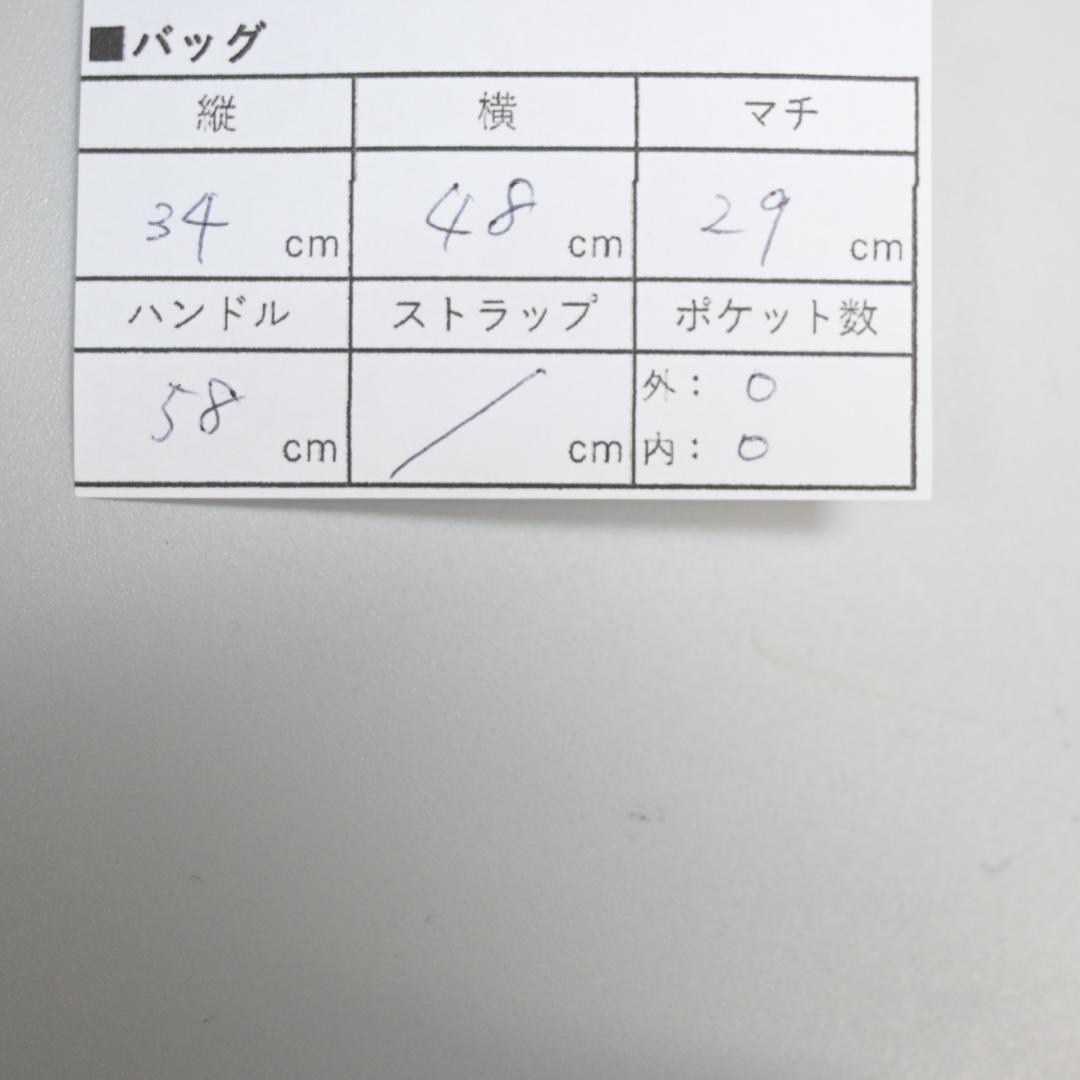 ■バッグ
縦 横 マチ
34 cm 48 cm 29 cm
ハンドル ストラップ ポケット数
58 cm / cm 外: 0
内: 0